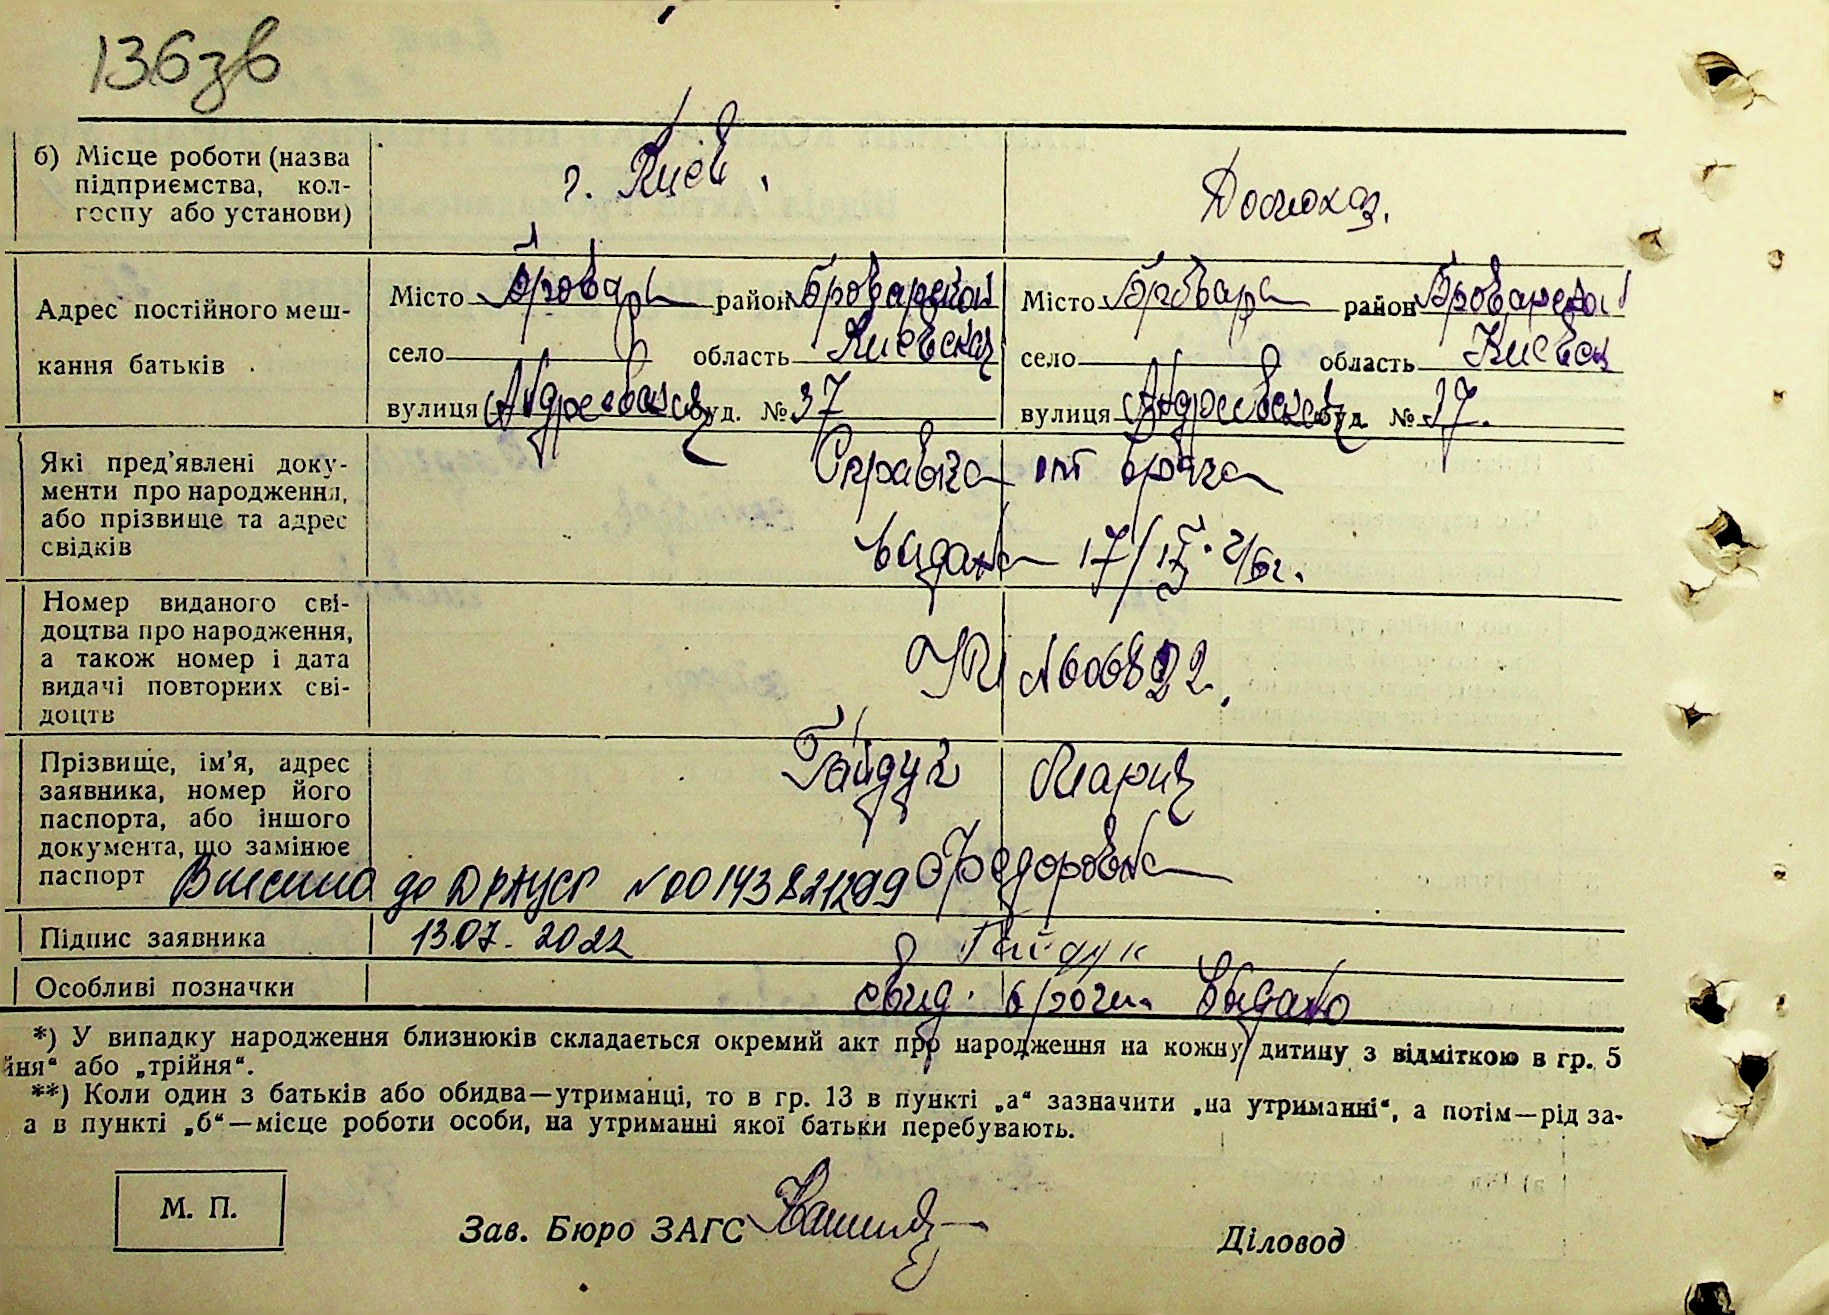 136зв
б) Місце роботи (назва
підприємства, кол-
госпу або установи)
г. Киев.
Домохоз.
Адрес постійного меш-
кання батьків
Місто Бровары район Броварской
село область Киевская
вулиця Андреевская буд. № 37
Місто Бровары район Броварской
село область Киевск
вулиця Андреевская буд. № 37.
Які пред'явлені доку-
менти про народження,
або прізвище та адрес
свідків
Справка от врача
выдана 17/IX. 46г.
Номер виданого сві-
доцтва про народження,
а також номер і дата
видачі повторних сві-
доцтв
№606892.
Прізвище, ім'я, адрес
заявника, номер його
паспорта, або іншого
документа, що замінює
паспорт
Гайдук Мария
Федоровна
Внесено до ДРАЦСГ №00143821299
Підпис заявника
13.07.2022
Гайдук
Особливі позначки
свид. врачем выдано
*) У випадку народження близнюків складається окремий акт про народження на кожну дитину з відміткою в гр. 5
йня“ або „трійня“.
**) Коли один з батьків або обидва—утриманці, то в гр. 13 в пункті „а“ зазначити „на утриманні“, а потім—рід за-
а в пункті „б“—місце роботи особи, на утриманні якої батьки перебувають.
М. П.
Зав. Бюро ЗАГС
Діловод